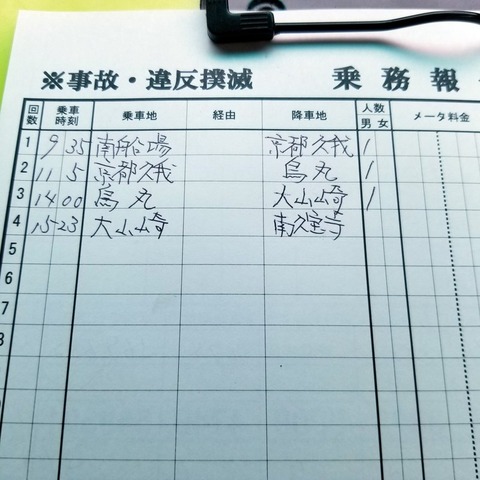 ※事故・違反撲滅 乗務報
回数 乗車時刻 乗車地 経由 降車地 人数 男 女 メータ料金
1 9 35 南船場 京都久我 1
2 11 5 京都久我 烏丸 1
3 14 00 烏丸 大山崎 1
4 15 23 大山崎 南久宝寺
5
6
7
8